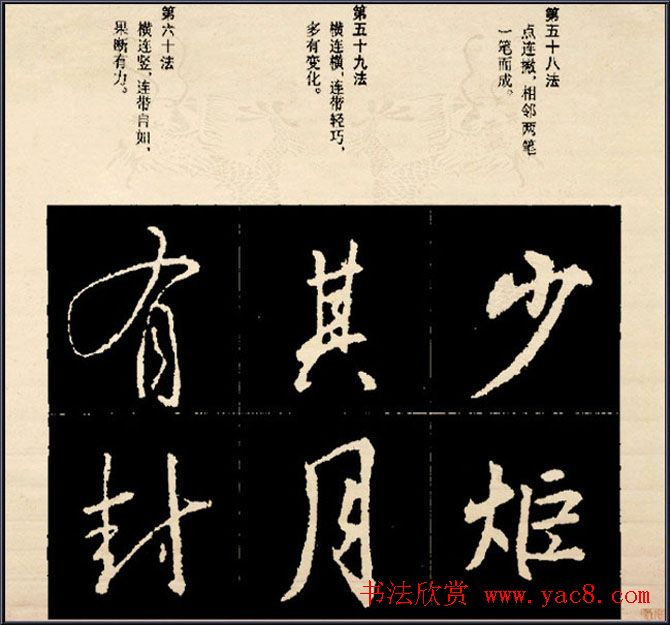 第五十八法
点连撇，相邻两笔
一笔而成。
第五十九法
横连横，连带轻巧，
多有变化。
第六十法
横连竖，连带自如，
果断有力。
少 其 有
炬 月 封
书法欣赏 www.yac8.com